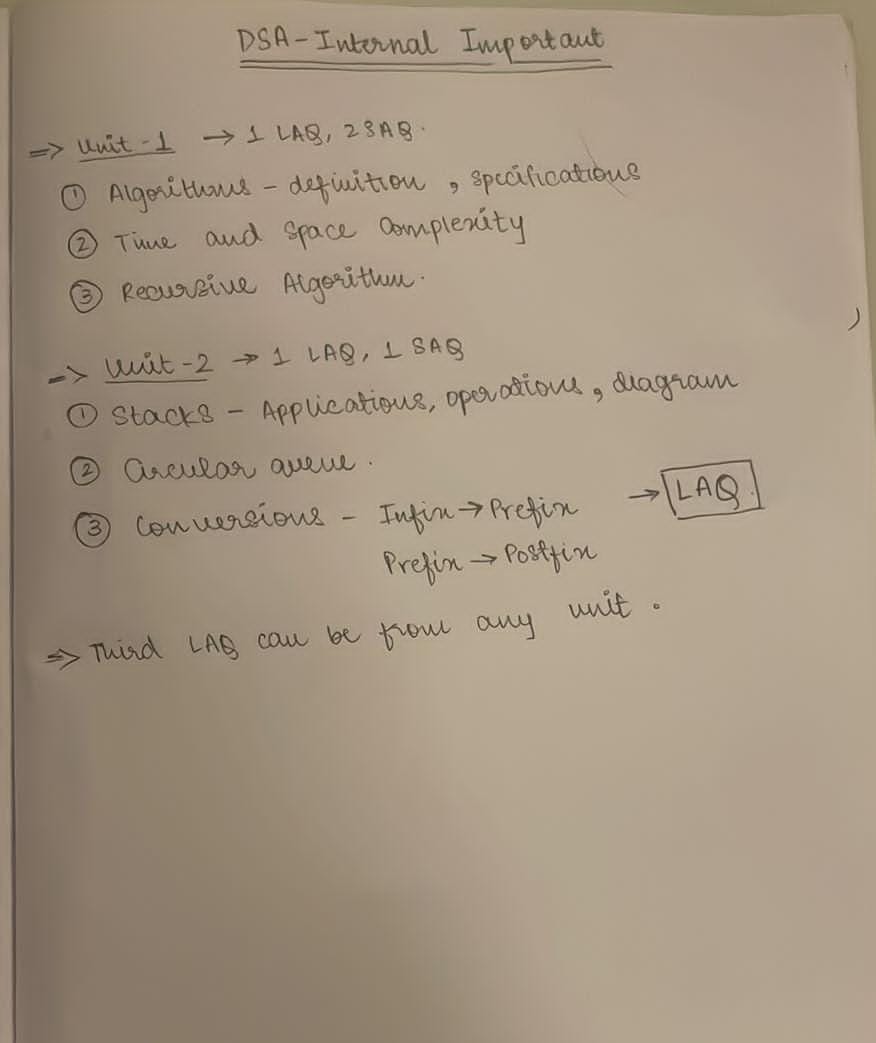 DSA-Internal Important
=> Unit-1 → 1 LAQ, 2 SAQ.
① Algorithms - definition, specifications
② Time and Space Complexity
③ Recursive Algorithm.
=> Unit-2 → 1 LAQ, 1 SAQ
① Stacks - Applications, operations, diagram
② Circular queue.
③ Conversions - Infix → Prefix → LAQ.
Prefix → Postfix
=> Third LAQ can be from any unit.